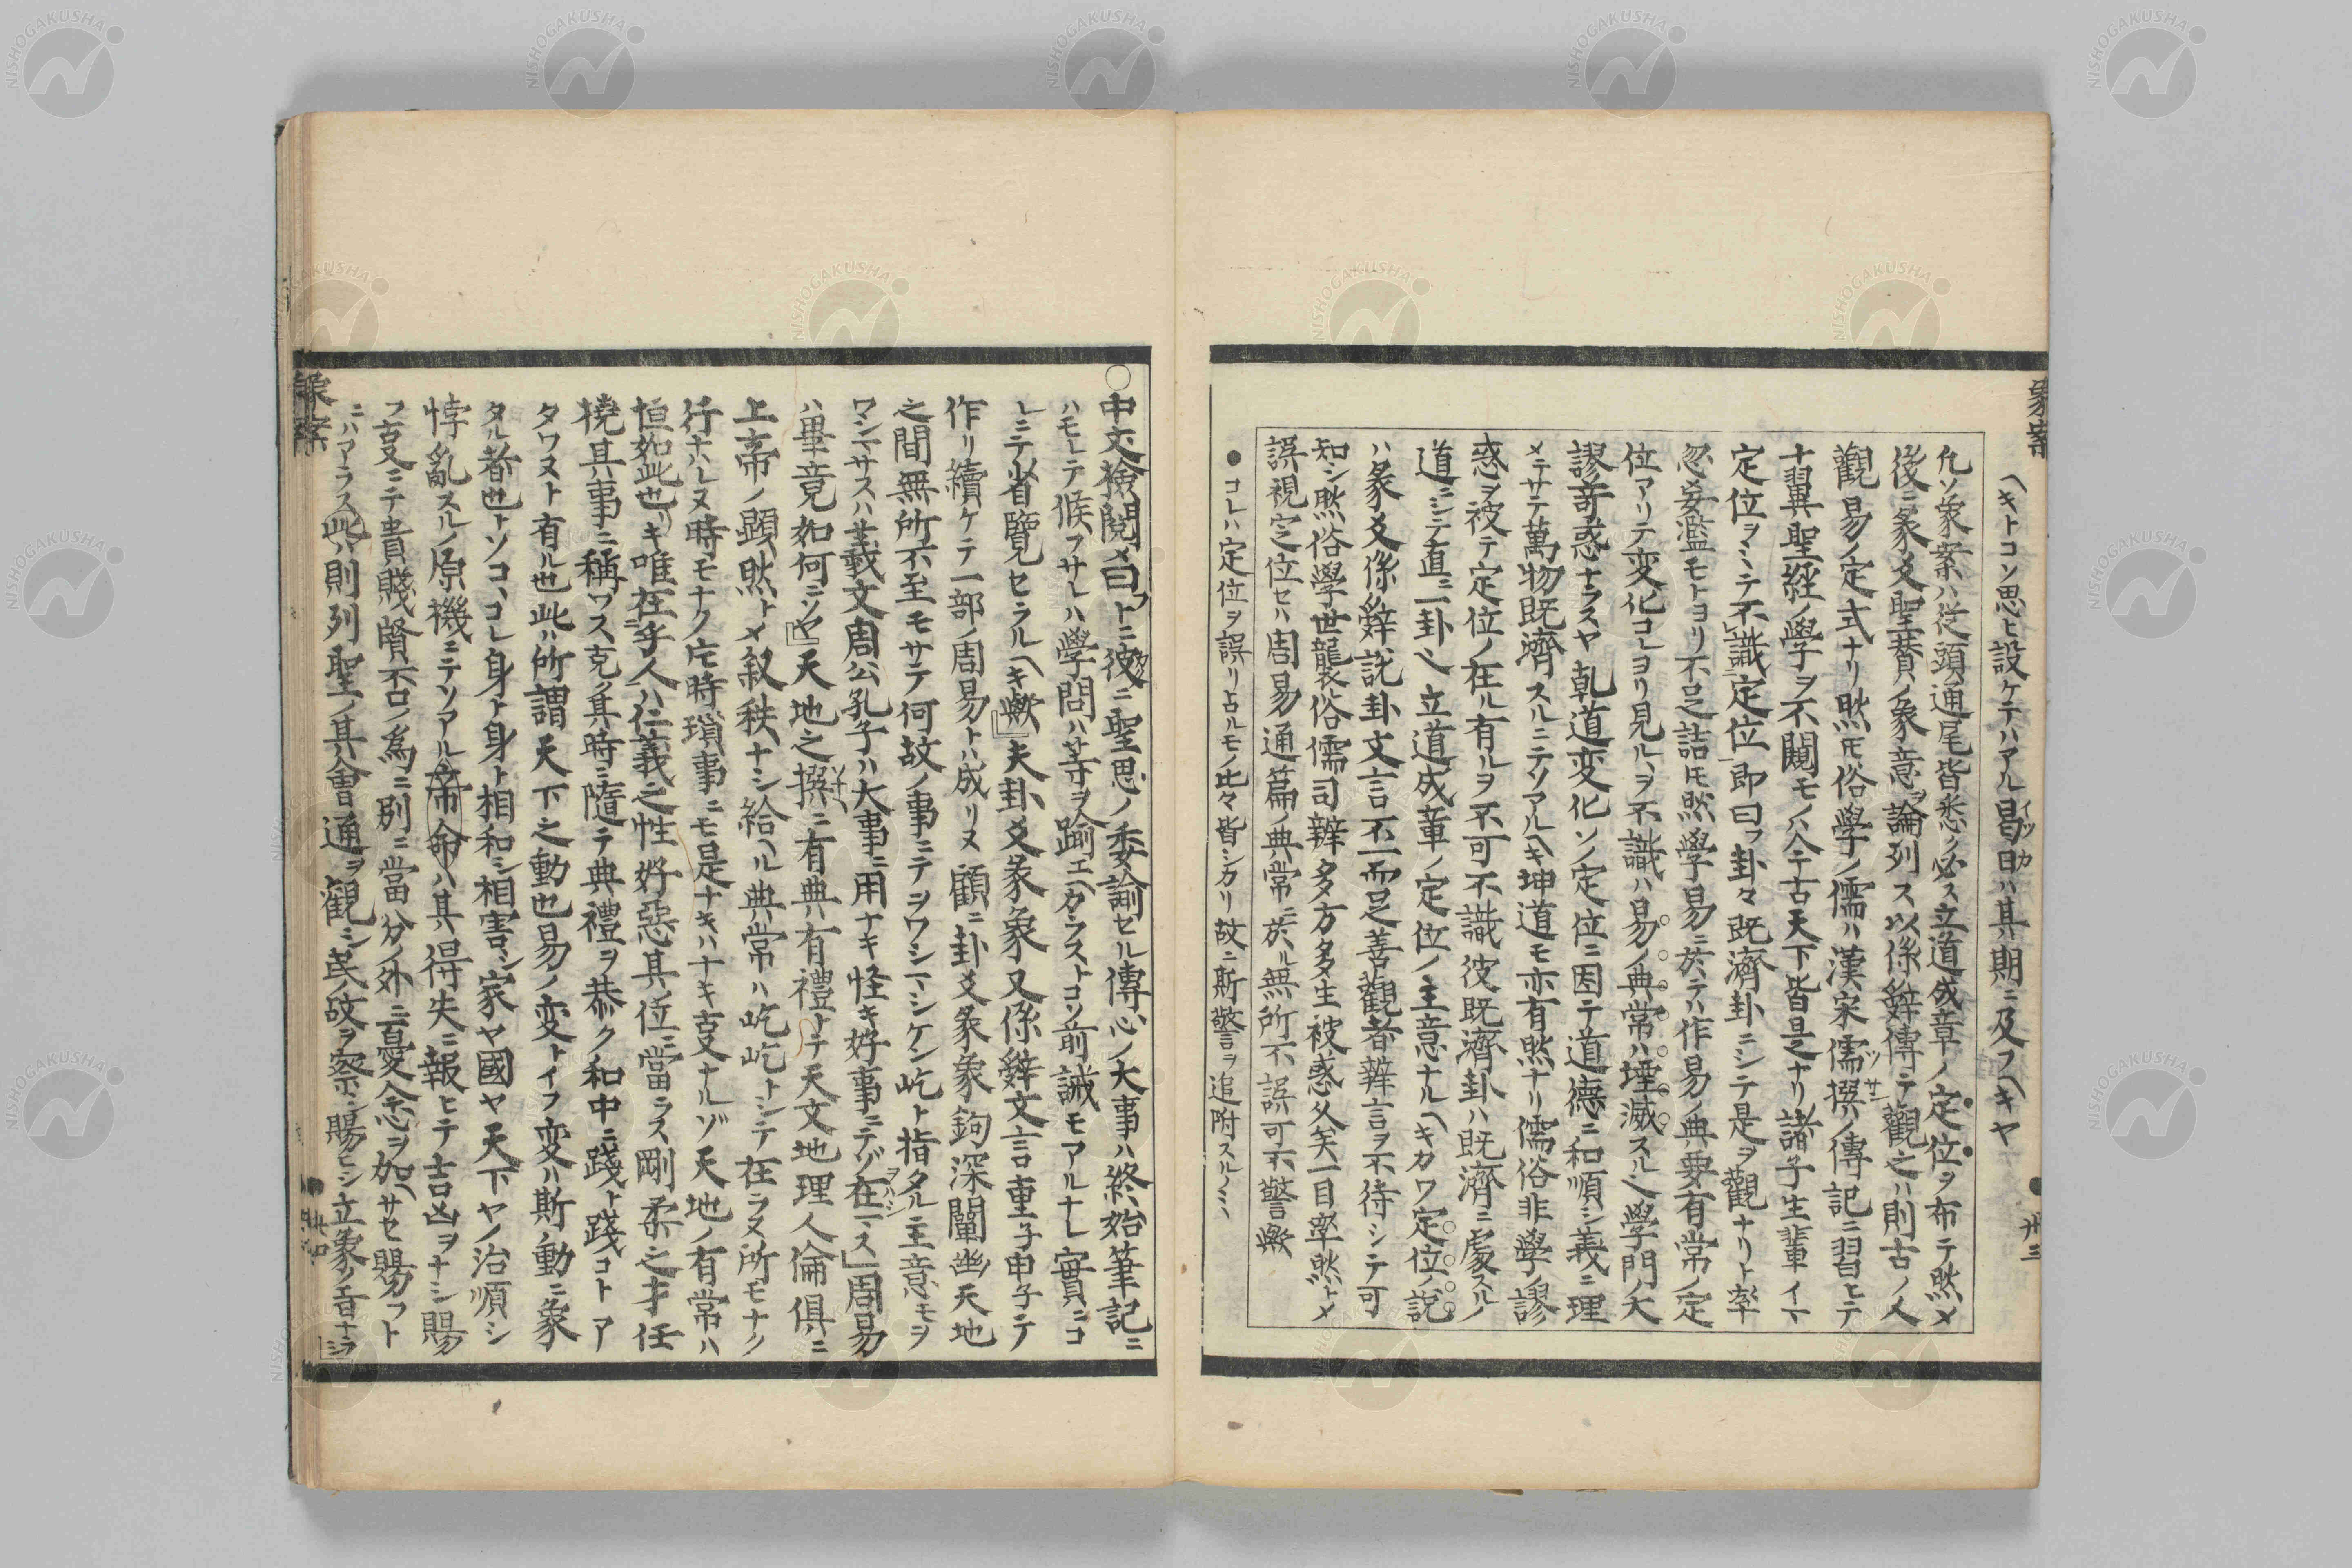 象案
ヘキトコソ思ヒ設ケテハアル曷日ハ其期ニ及フヘキヤ
凢ソ象案ハ従頭通尾皆悉ク必ス立道成章ノ定位ヲ布テ然メ
後ニ彖爻聖賛ノ象意ヲ論列ス以係辭傳テ觀之ハ則古ノ人
觀易ノ定式ナリ然ㇳモ俗學ノ儒ハ漢宋儒撰ノ傳記ニ習ヒテ
十翼聖經ノ學ヲ不闚モノハ今古天下皆是ナリ諸子生輩イマ
定位ヲミテ不識定位即曰フ卦々既濟卦ニシテ是ヲ觀ナリト率
忽妄濫モトヨリ不足詰ㇳモ然學易ニ於テハ作易ノ典要有常ノ定
位アリテ変化コレヨリ見ルヽヲ不識ハ易ノ典常ハ堙滅スル也學門ノ大
謬奇惑ナラスヤ乹道変化ソノ定位ニ因テ道德ニ和順シ義ニ理
メテサテ萬物既濟スルニテソアルヘキ坤道モ亦有然ナリ儒俗非學ノ謬
惑ヲ被テ定位ノ在ル有ルヲ不可不識彼既濟卦ハ既濟ニ處スルノ
道ニシテ直ニ一卦也立道成章ノ定位ノ主意ナルヘキカワ定位ノ說
ハ彖爻係辭說卦文言不一而足善觀者辯言ヲ不待シテ可
知シ然俗學世襲俗儒司辯多方多生被惑久矣一目率然トメ
誤視定位セハ周易通篇ノ典常ニ於ル無所不誤可不警歟
●コレハ定位ヲ誤リ占ルモノ比々皆シカリ故ニ斯警言ヲ追附スルノミ
卅三
○中交撿閲メ曰フトニ彼ニ聖思ノ委諭セル傳心ノ大事ハ終始筆記ニ
ハモレテ候フサレハ學問ハ等ヲ踰エヘカラストコソ前誡モアルナレ實ニコ
レミテ省覽セラルヘキ歟夫卦爻彖象又係辭文言重子申子テ
作リ續ケテ一部ノ周易トハ成リヌ顧ニ卦爻彖象鉤深闡幽天地
之間無所不至モサテ何故ノ事ニテヲワシマシケン屹ト指タル主意モヲ
ワシマサスハ羲文周公孔子ハ大事ニ用ナキ怪キ好事ニテゾ在マス周易
ハ畢竟如何ニソヤ天地之撰ニ有典有禮トテ天文地理人倫俱ニ
上帝ノ顕然トメ叙秩ナシ給ヘル典常ハ屹屹トシテ在ラヌ所モナク
行ホレヌ時モナク庀時瑣事ニモ是ナキハナキ叓ナルゾ天地ノ有常ハ
恒如此也リキ唯在乎人ハ仁義之性好惡其位ニ當ラス剛柔之才任
撓其事ニ稱ワス克ノ其時ニ隨テ典禮ヲ恭ク和中ニ踐ト踐コトア
タワヌト有ル也此ハ所謂天下之動也易ノ変トイフ変ハ斯ノ動ニ象
タル者也トソコヽコレ身ト身ト相和シ相害シ家ヤ國ヤ天下ヤノ治順シ
悖亂スルノ原機ニテソアル帝命ハ其得失ニ報ヒテ吉凶ヲナシ賜
フ叓ニテ貴賤賢否ノ為ニ別ニ當分ノ外ニ憂念ヲ加ヘサセ賜フト
ニハアラス此ハ則列聖ノ其會通ヲ觀シ芪ノ故ヲ察シ賜モシ立象ノ旨ナラン
象案
卅四